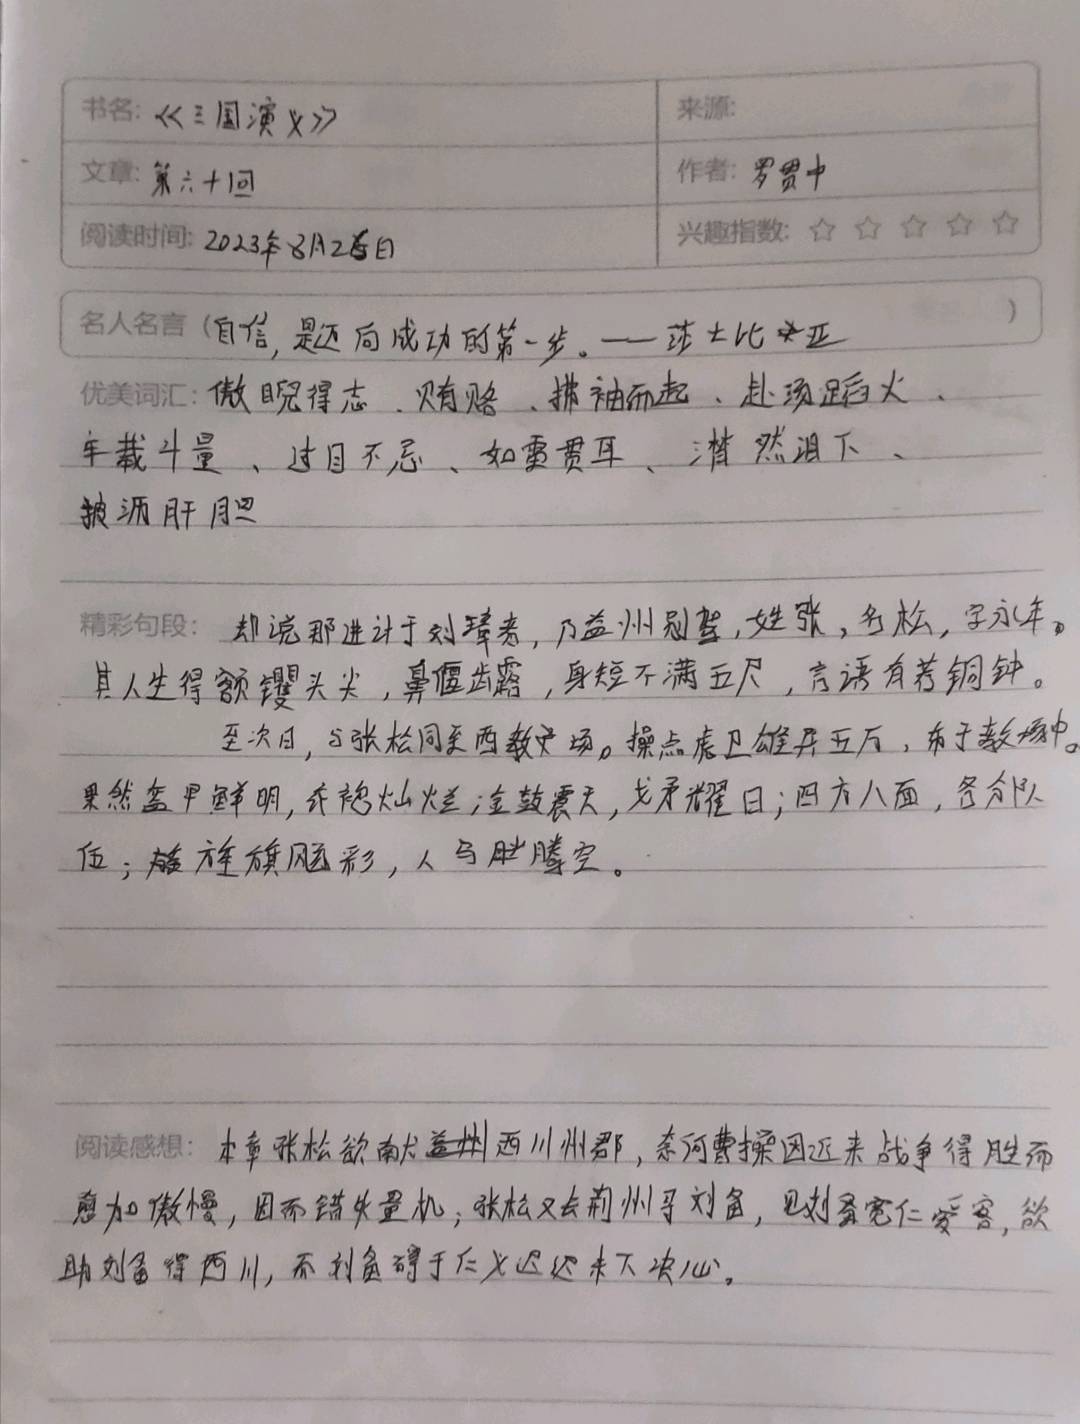 书名: 《三国演义》 来源:
文章: 第六十回 作者: 罗贯中
阅读时间: 2023年8月25日 兴趣指数: ☆ ☆ ☆ ☆ ☆
名人名言 (自信,是迈向成功的第一步。——莎士比亚 )
优美词汇: 傲睨得志、贿赂、拂袖而起、赴汤蹈火、
车载斗量、过目不忘、如雷贯耳、潸然泪下、
披沥肝胆
精彩句段: 却说那进计于刘璋者,乃益州别驾,姓张,名松,字永年。
其人生得额钁头尖,鼻偃齿露,身短不满五尺,言语有若铜钟。
至次日,与张松同至西教场。操点虎卫雄兵五万,布于教场中。
果然盔甲鲜明,衣袍灿烂;金鼓震天,戈矛耀日;四方八面,各分队
伍;旌旗飐彩,人马腾空。
阅读感想: 本章张松欲献西川州郡,奈何曹操因近来战争得胜而
愈加傲慢,因而错失良机;张松又去荆州寻刘备,见刘备宽仁爱客,欲
助刘备得西川,而刘备碍于仁义迟迟未下决心。